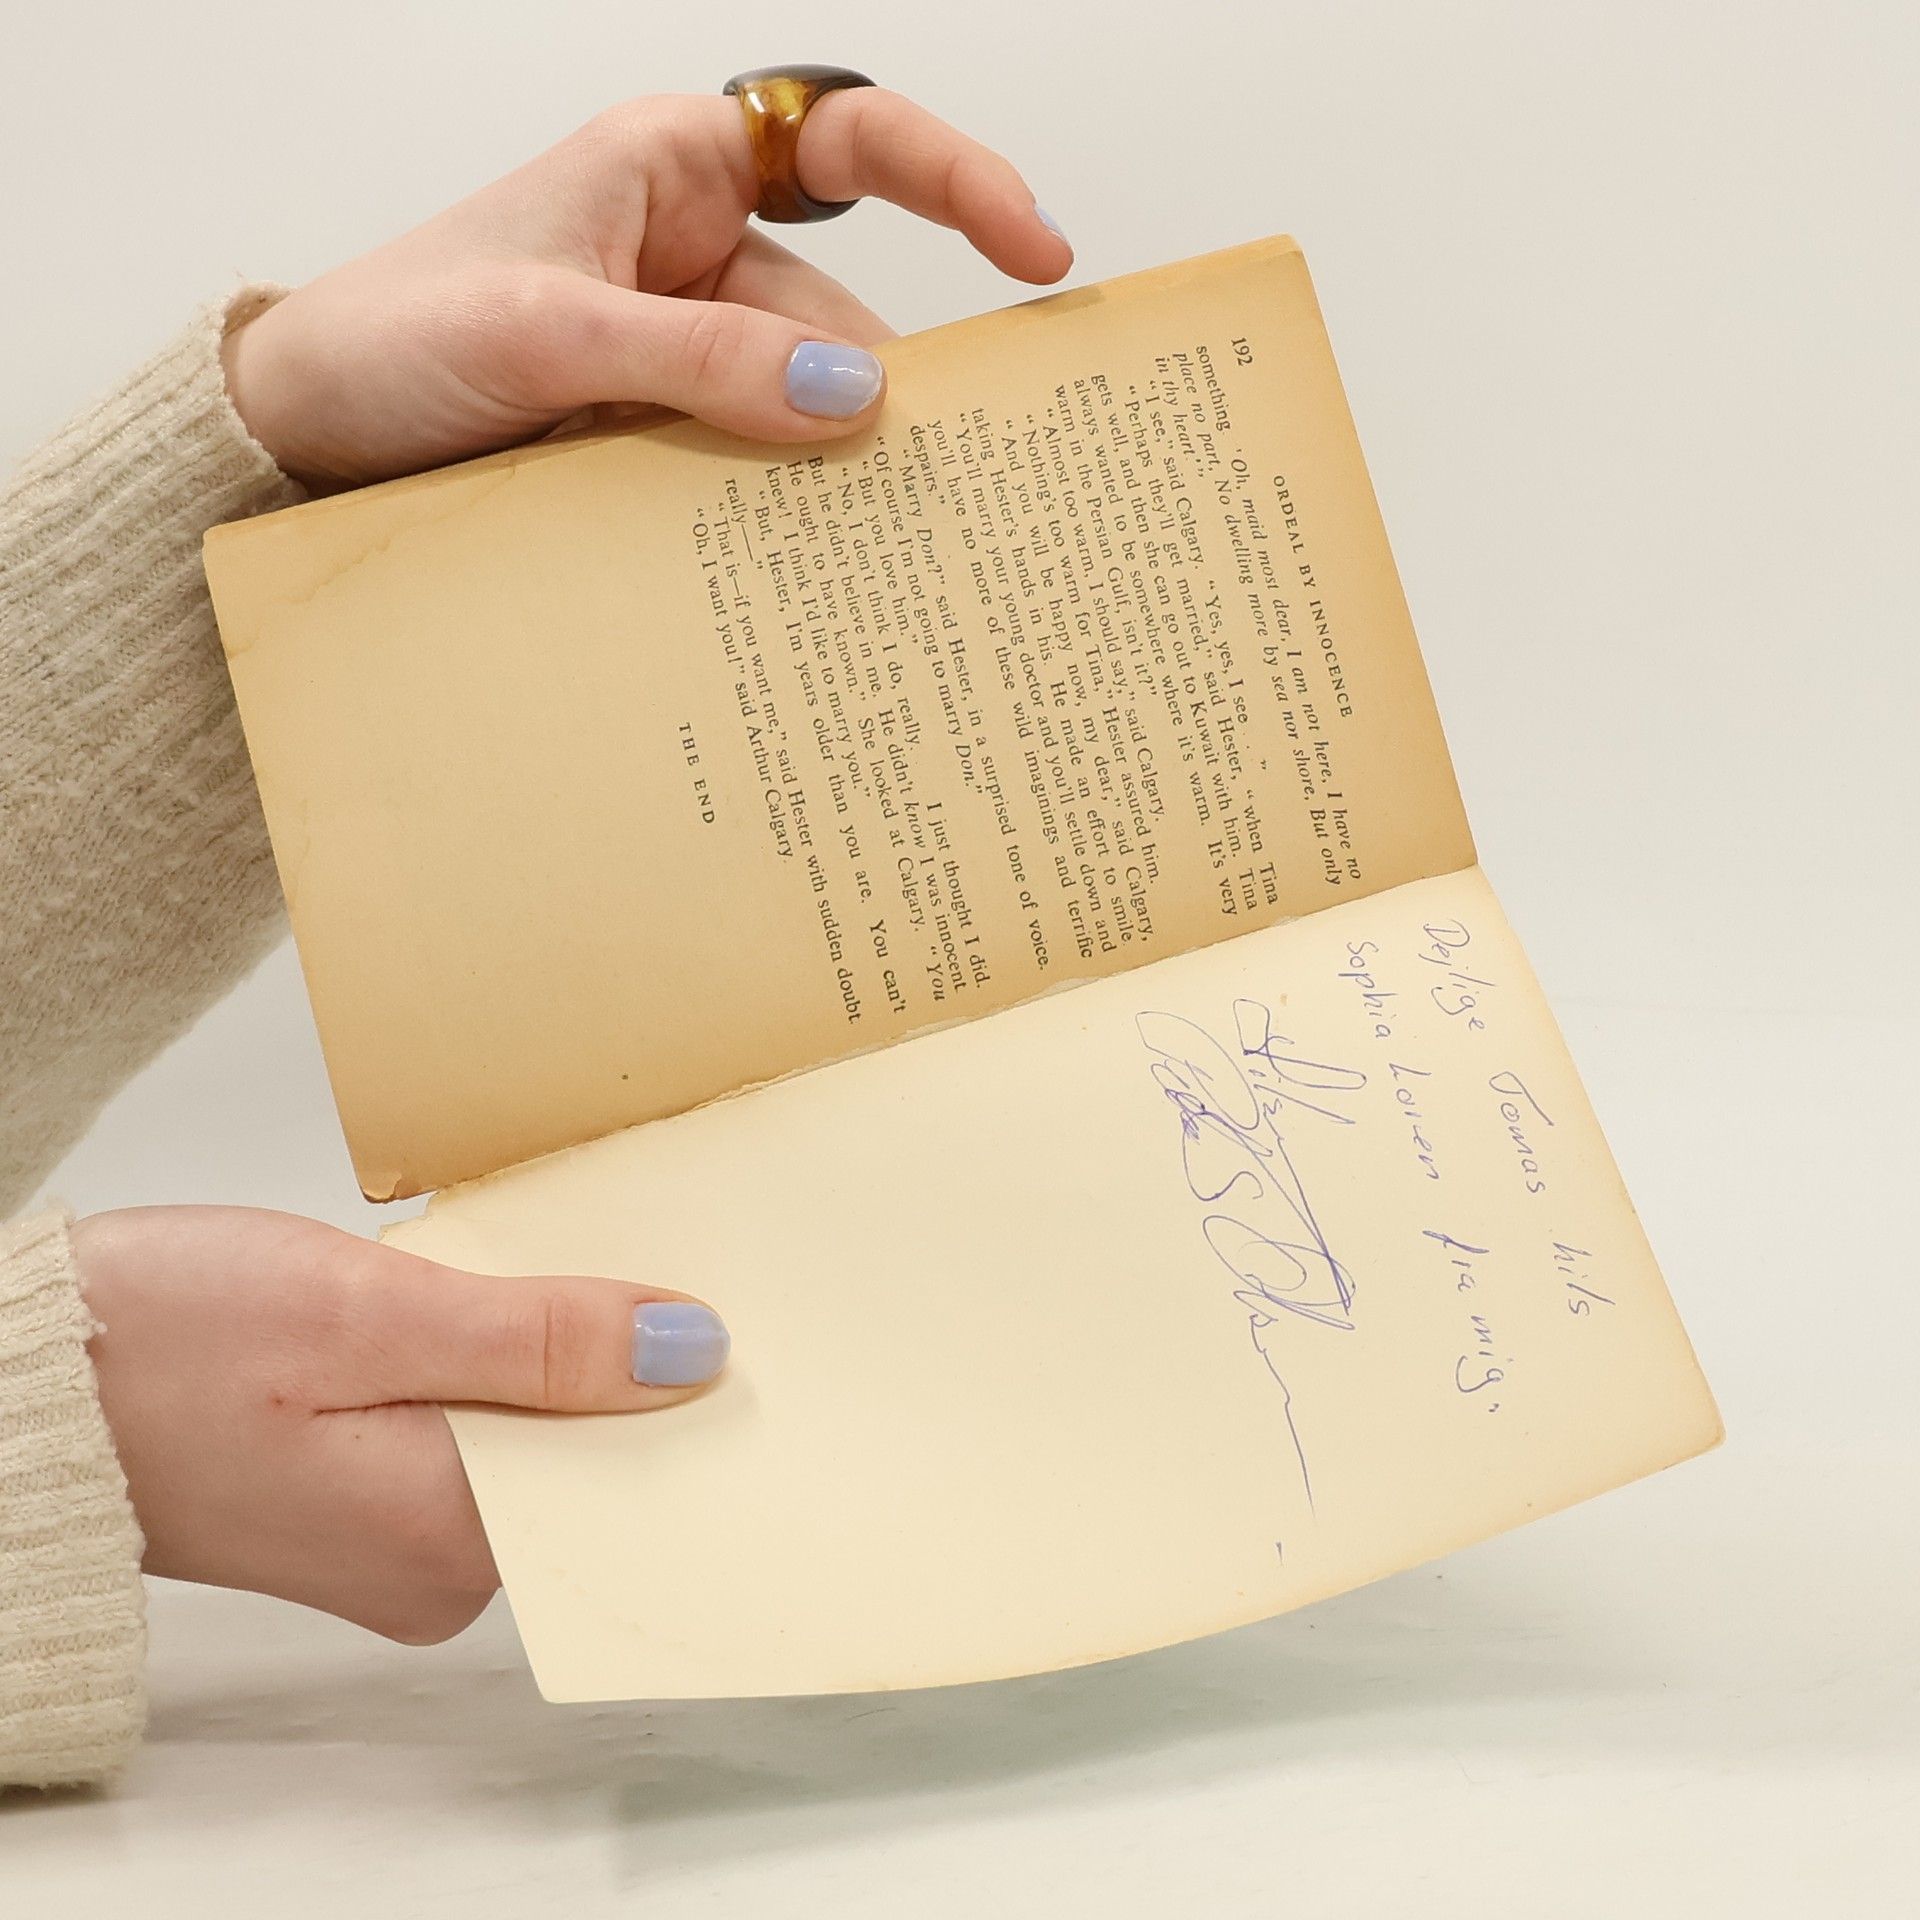 192 ORDEAL BY INNOCENCE
something. ' Oh, maid most dear, I am not here, I have no
place no part, No dwelling more by sea nor shore, But only
in thy heart.' ”
“ I see,” said Calgary. “ Yes, yes, I see . . . ”
“ Perhaps they'll get married,” said Hester, “ when Tina
gets well, and then she can go out to Kuwait with him. Tina
always wanted to be somewhere where it's warm. It's very
warm in the Persian Gulf, isn't it?”
“ Almost too warm, I should say,” said Calgary.
“ Nothing's too warm for Tina,” Hester assured him.
“ And you will be happy now, my dear,” said Calgary,
taking Hester's hands in his. He made an effort to smile.
“ You'll marry your young doctor and you'll settle down and
you'll have no more of these wild imaginings and terrific
despairs.”
“ Marry Don?” said Hester, in a surprised tone of voice.
“ Of course I'm not going to marry Don.”
“ But you love him.”
“ No, I don't think I do, really. I just thought I did.
But he didn't believe in me. He didn't know I was innocent.
He ought to have known.” She looked at Calgary. “ You
knew! I think I'd like to marry you.”
“ But, Hester, I'm years older than you are. You can't
really——”
“ That is—if you want me,” said Hester with sudden doubt.
“ Oh, I want you!” said Arthur Calgary.
THE END
Dejlige Tomas hils
Sophia Loren fra mig.